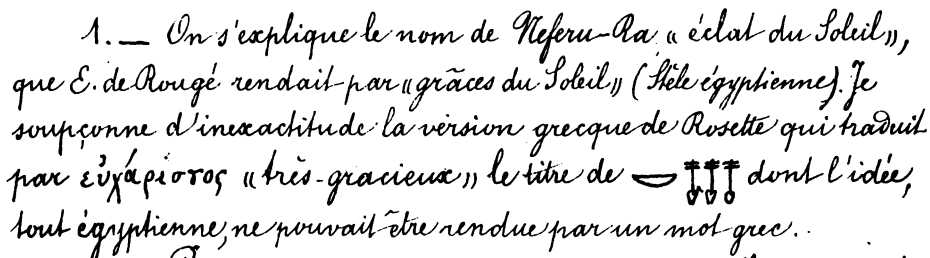 1. — On s'explique le nom de Neferu-Ra « éclat du Soleil »,
que E. de Rougé rendait par « grâces du Soleil » (Stèle égyptienne). Je
soupçonne d'inexactitude la version grecque de Rosette qui traduit
par εὐχάριστος « très-gracieux » le titre de 𓎟𓄤𓄤𓄤 dont l'idée,
tout égyptienne, ne pouvait être rendue par un mot grec.